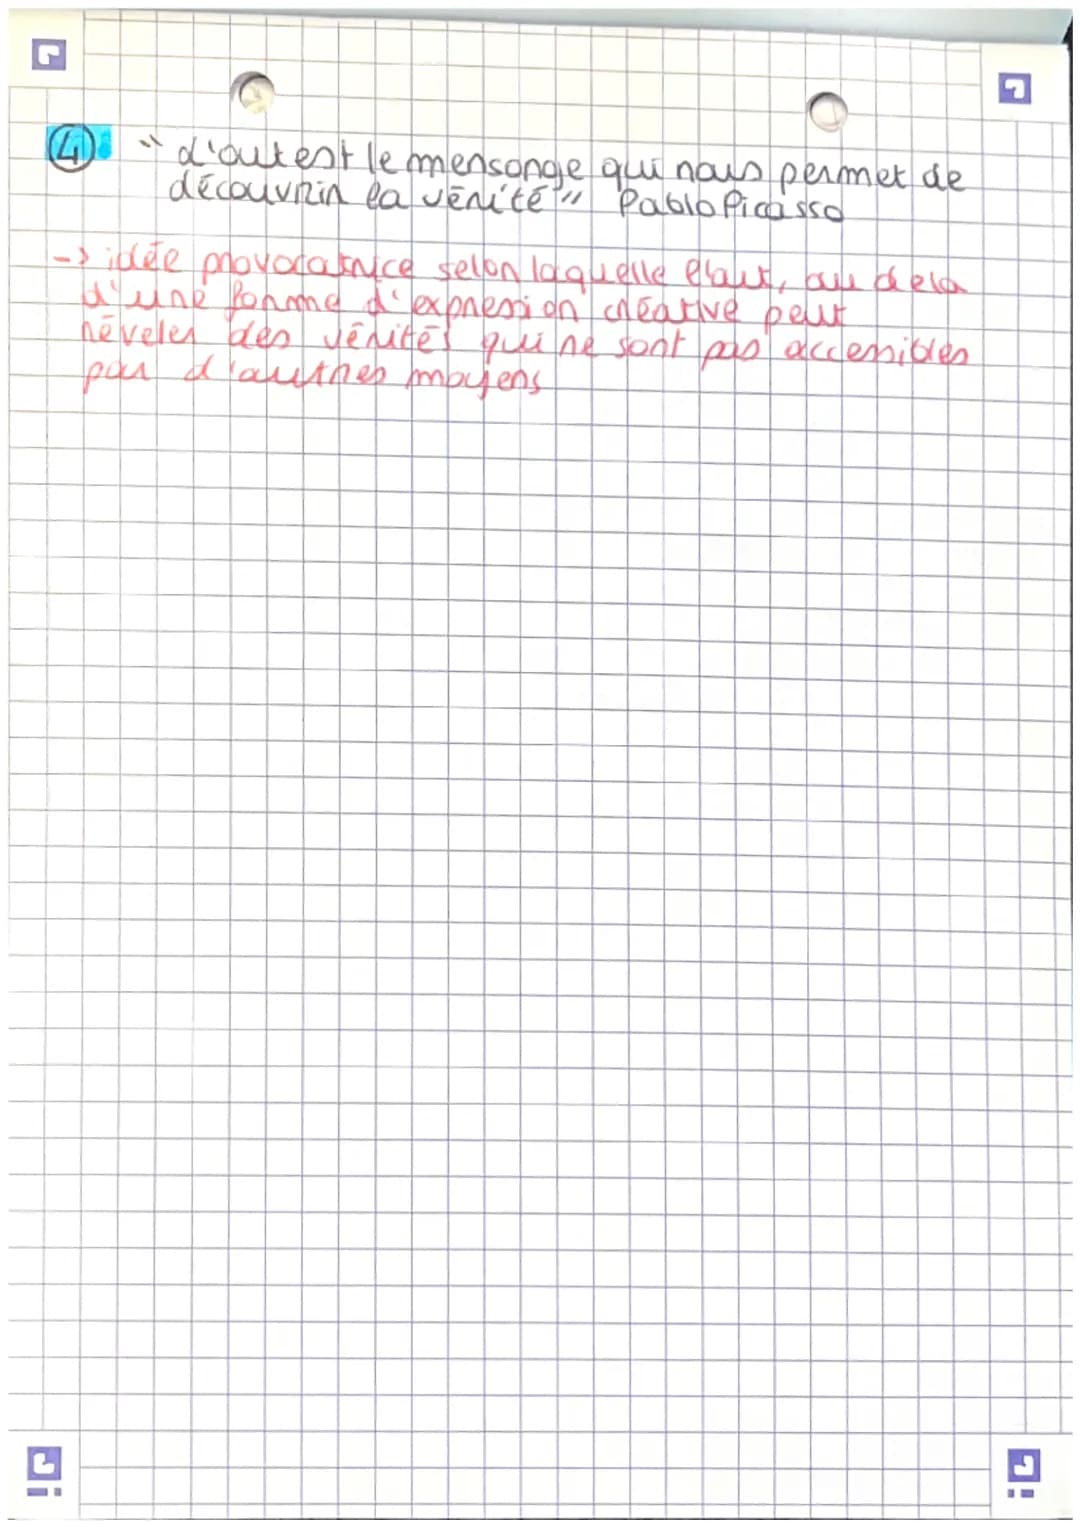 ④ " d'aut est le mensonge qui nous permet de
découvrir la vérité " Pablo Picasso
-> idée provocatrice selon laquelle l'aut, au dela
d'une forme d'expression créative peut
réveler des vérités qui ne sont pas accessibles
par d'autres moyens